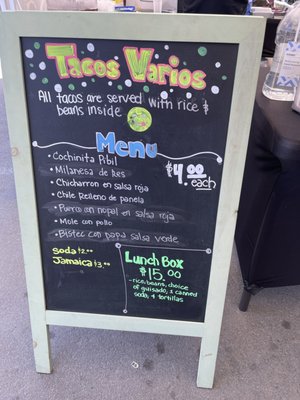 Tacos Varios
All tacos are served with rice &
beans inside
Menu
$4.00 each
- Cochinita Pibil
- Milanesa de Res
- Chicharron en salsa roja
- Chile Relleno de panela
- Puerco en nopal en salsa roja
- Mole con pollo
- Bistec con papa salsa verde
Soda $2.00
Jamaica $3.00
Lunch Box
$15.00
- rice, beans, choice
of guisado, 1 canned
soda, 4 tortillas